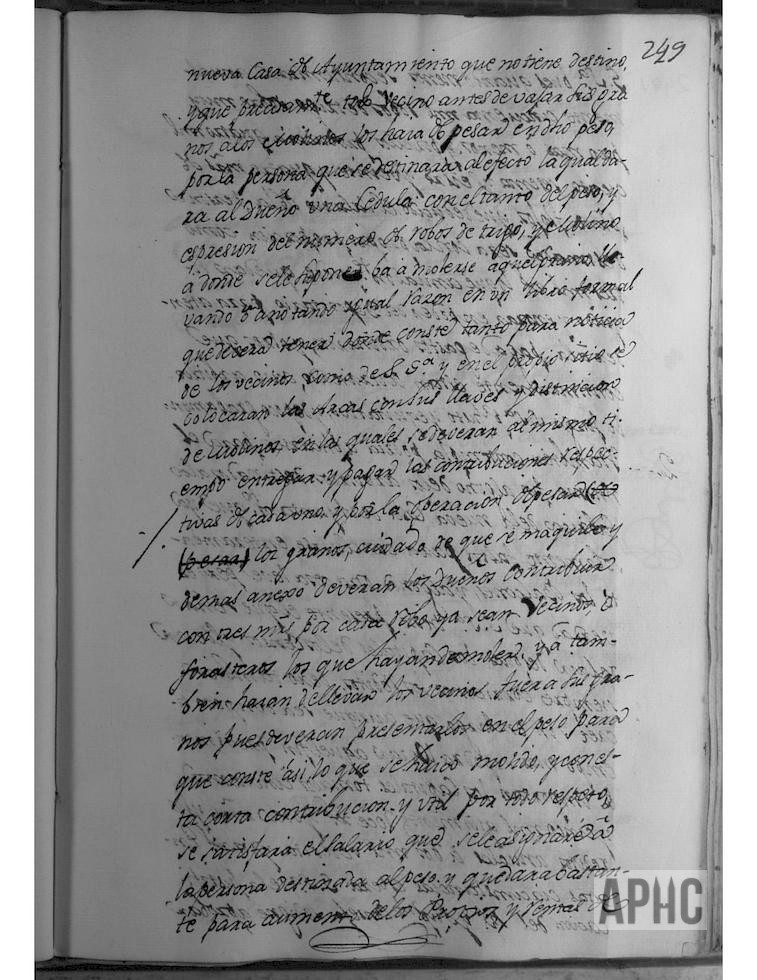 249
nueva Casa de Ayuntamiento que no tiene destino,
y que precisamte todo Vecino antes de vajar sus gra
nos a los Molinos los haia de pesar en dho peso,
por la persona que se destinara al efecto la qual da-
ra al Dueño una Cedula con el tanto del peso, y
espresion del numero de robos de trigo, y el Molino
a donde se le dispone ba a molerse aquel
vando o anotando igual razon en un libro formal
que devera tener donde conste tanto para noticia
de los vecinos como de S. Sa y en el propio sitio se
colocaran las Arcas con sus llaves y distincion
de Molinos en las quales se deveran al mismo ti-
empo entregar y pagar las contribuciones respec-
tivas de cada uno, y por la operacion de pesar
(pesar) los granos, cuidado de que se maquile y
demas anexo deveran los Dueños contribuir
con tres ms por cada robo ya sean Vecinos o
forasteros los que hayan de moler, y a tam-
bien hazan de llevar los vecinos fuera sus gra-
nos pues deveran presentarlos en el peso para
que conste asi lo que se haia molido, y con es-
ta corta contribucion y util por todo respeto,
se satisfara el salario que se le asignare a
la persona destinada al peso y quedara bastan-
te para aumento de los Propios y demas de
APHC